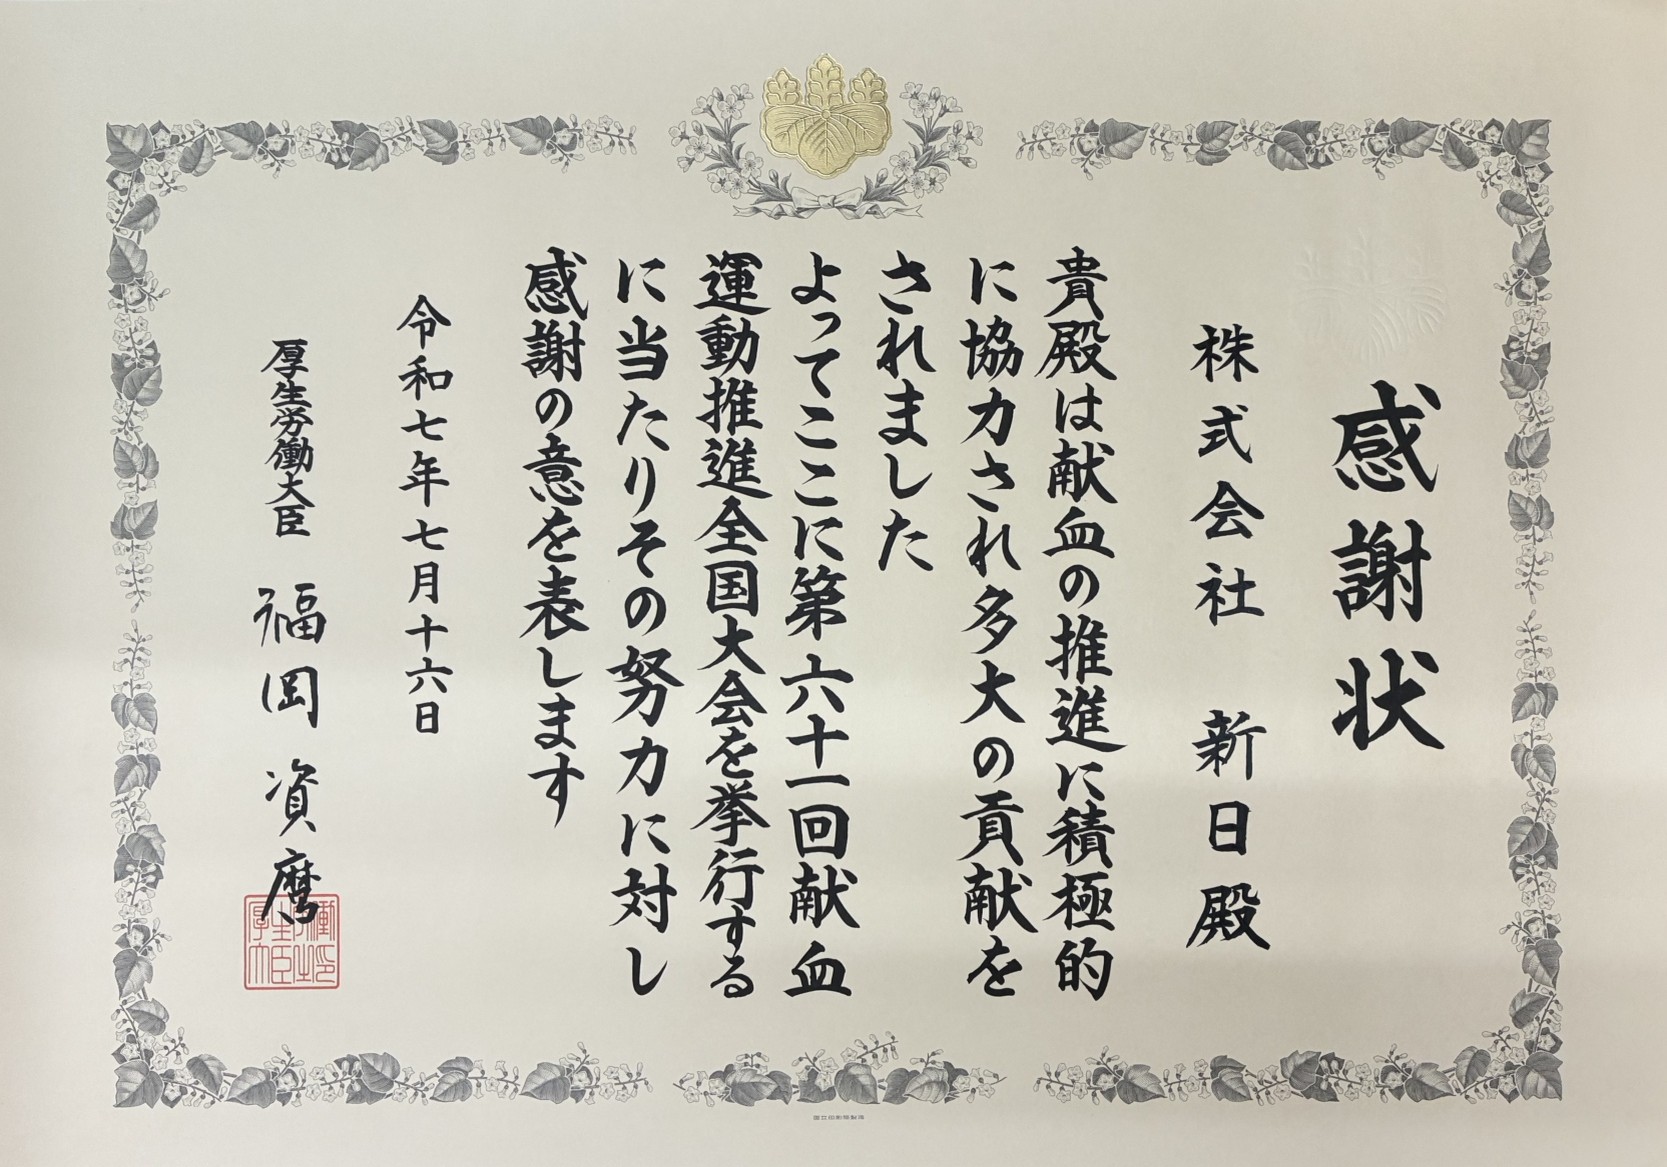 感謝状
株式会社 新日殿
貴殿は献血の推進に積極的
に協力され多大の貢献を
されました
よってここに第六十一回献血
運動推進全国大会を挙行する
に当たりその努力に対し
感謝の意を表します
令和七年七月十六日
厚生労働大臣 福岡資麿